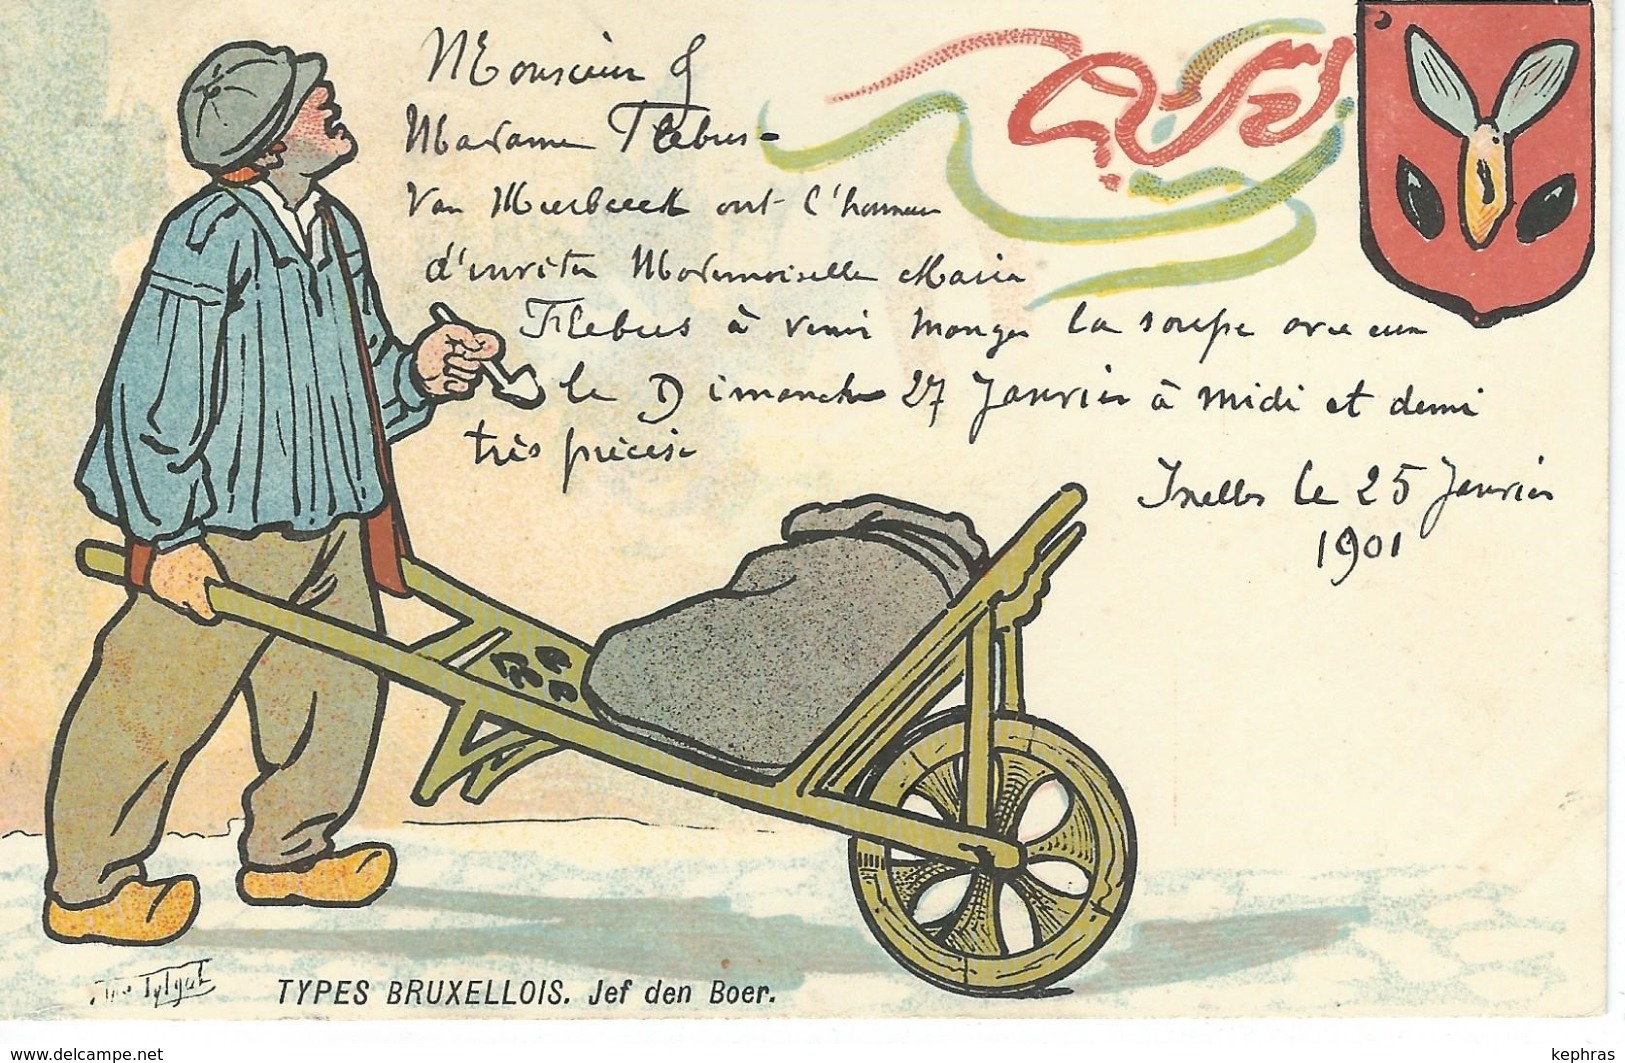 Monsieur &
Madame Flebus-
Van Meerbeeck ont l'honneur
d'inviter Mademoiselle Maria
Flebus à venir manger la soupe avec eux
le Dimanche 27 Janvier à midi et demi
très précise
Ixelles le 25 Janvier
1901
TYPES BRUXELLOIS. Jef den Boer.
www.delcampe.net
kephras